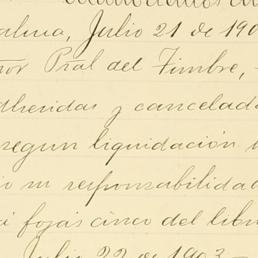 alma, Julio 21 de 190
nor Pral del Timbre, -
dheridas y cancelada
segun liquidación
io mi responsabilidad
á fojas cinco del libr
Julio 22 de 1903 -